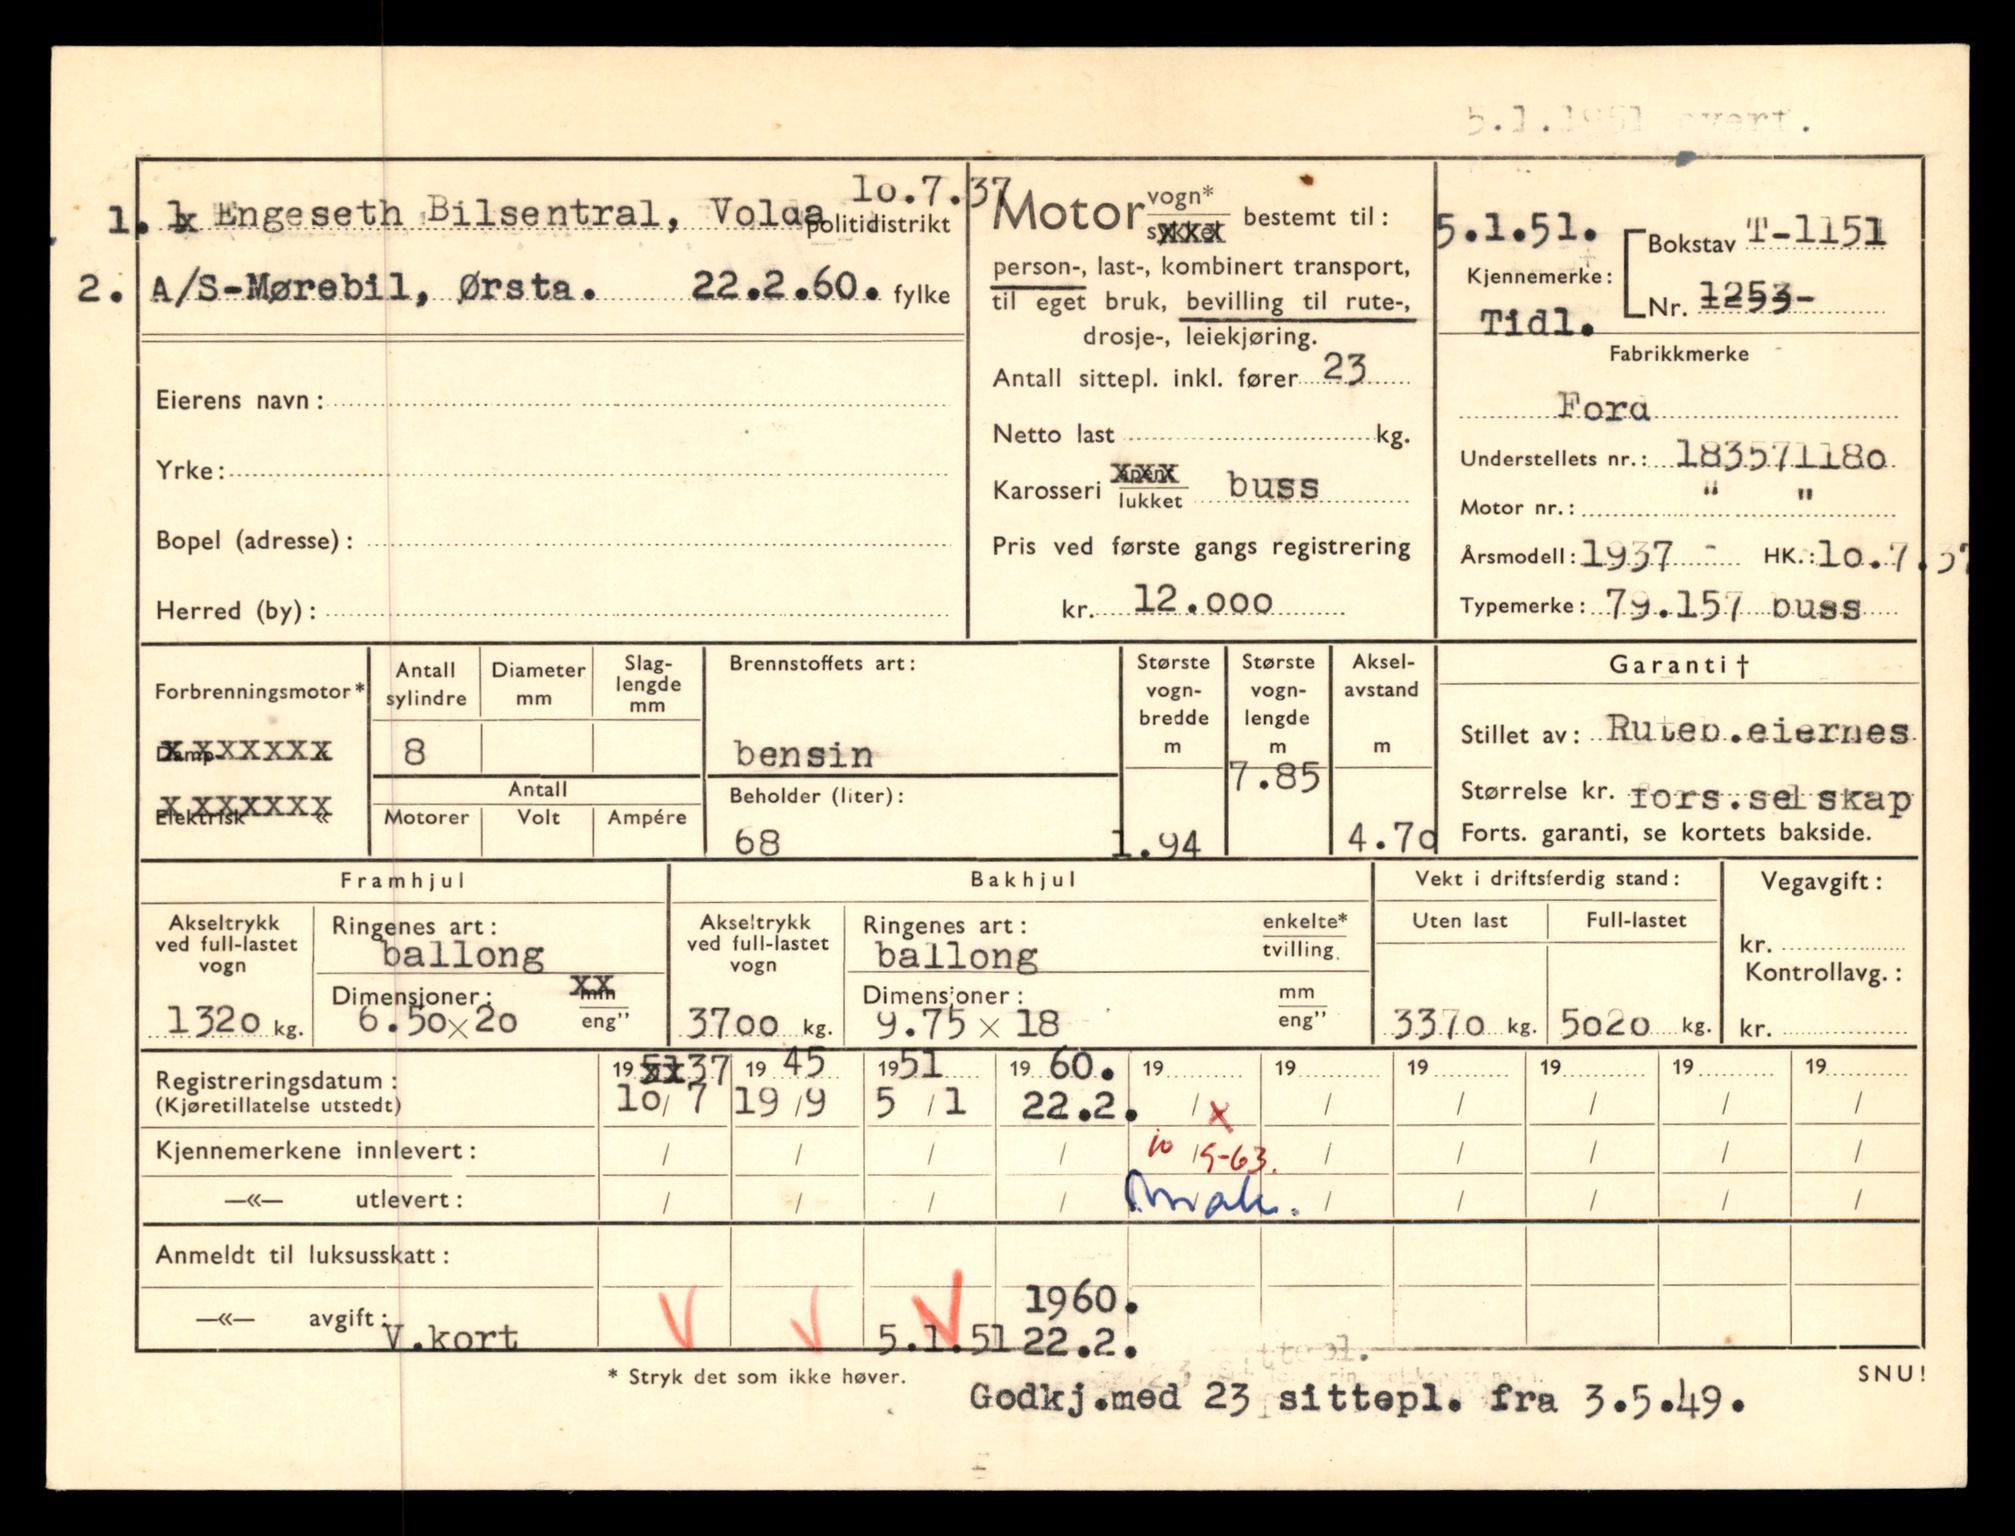 5.1.1951 overt.
lo.7.37
1. Engeseth Bilsentral, Volda politidistrikt
2. A/S-Mørebil, Ørsta. 22.2.60. fylke
Eierens navn:
Yrke:
Bopel (adresse):
Herred (by):
Motor vogn* sykkel bestemt til:
person-, last-, kombinert transport,
til eget bruk, bevilling til rute-,
drosje-, leiekjøring.
Antall sittepl. inkl. fører 23
Netto last kg.
Karosseri åpent lukket buss
Pris ved første gangs registrering
kr. 12.ooo
5.1.51. Bokstav T-1151
Kjennemerke:
Tidl. Nr. 1253-
Fabrikkmerke
Ford
Understellets nr.: 18357118o
Motor nr.: " "
Årsmodell: 1937 - HK.: lo.7.37
Typemerke: 79.157 buss
Forbrenningsmotor*
Damp- xxxxxxx «
Elektrisk xxxxxxx «
Antall sylindre
8
Diameter mm
Slag-lengde mm
Antall
Motorer Volt Ampére
Brennstoffets art:
bensin
Beholder (liter):
68
Største vogn-bredde m
1.94
Største vogn-lengde m
7.85
Aksel-avstand m
4.7o
Garanti †
Stillet av: Ruteb.eiernes
Størrelse kr. fors.selskap
Forts. garanti, se kortets bakside.
Framhjul
Akseltrykk ved full-lastet vogn
132o kg.
Ringenes art:
ballong
Dimensjoner: xx mm
6.5o x 2o eng"
Bakhjul
Akseltrykk ved full-lastet vogn
37oo kg.
Ringenes art: enkelte*
ballong tvilling
Dimensjoner: mm
9.75 x 18 eng"
Vekt i driftsferdig stand:
Uten last Full-lastet
337o kg. 5o2o kg.
Vegavgift:
kr.
Kontrollavg.:
kr.
Registreringsdatum: 19 51 37 19 45 19 51 19 60. 19 19 19 19 19 19
(Kjøretillatelse utstedt) lo / 7 19 / 9 5 / 1 22.2. / x / / / / /
Kjennemerkene innlevert: / / / / 10 / 5-63. / / / / /
—«— utlevert: / / / / / / / / / /
Anmeldt til luksusskatt:
1960.
—«— avgift: V.kort V V V 5.1.51 22.2.
* Stryk det som ikke høver.
23 sittepl.
SNU!
Godkj.med 23 sittepl. fra 3.5.49.